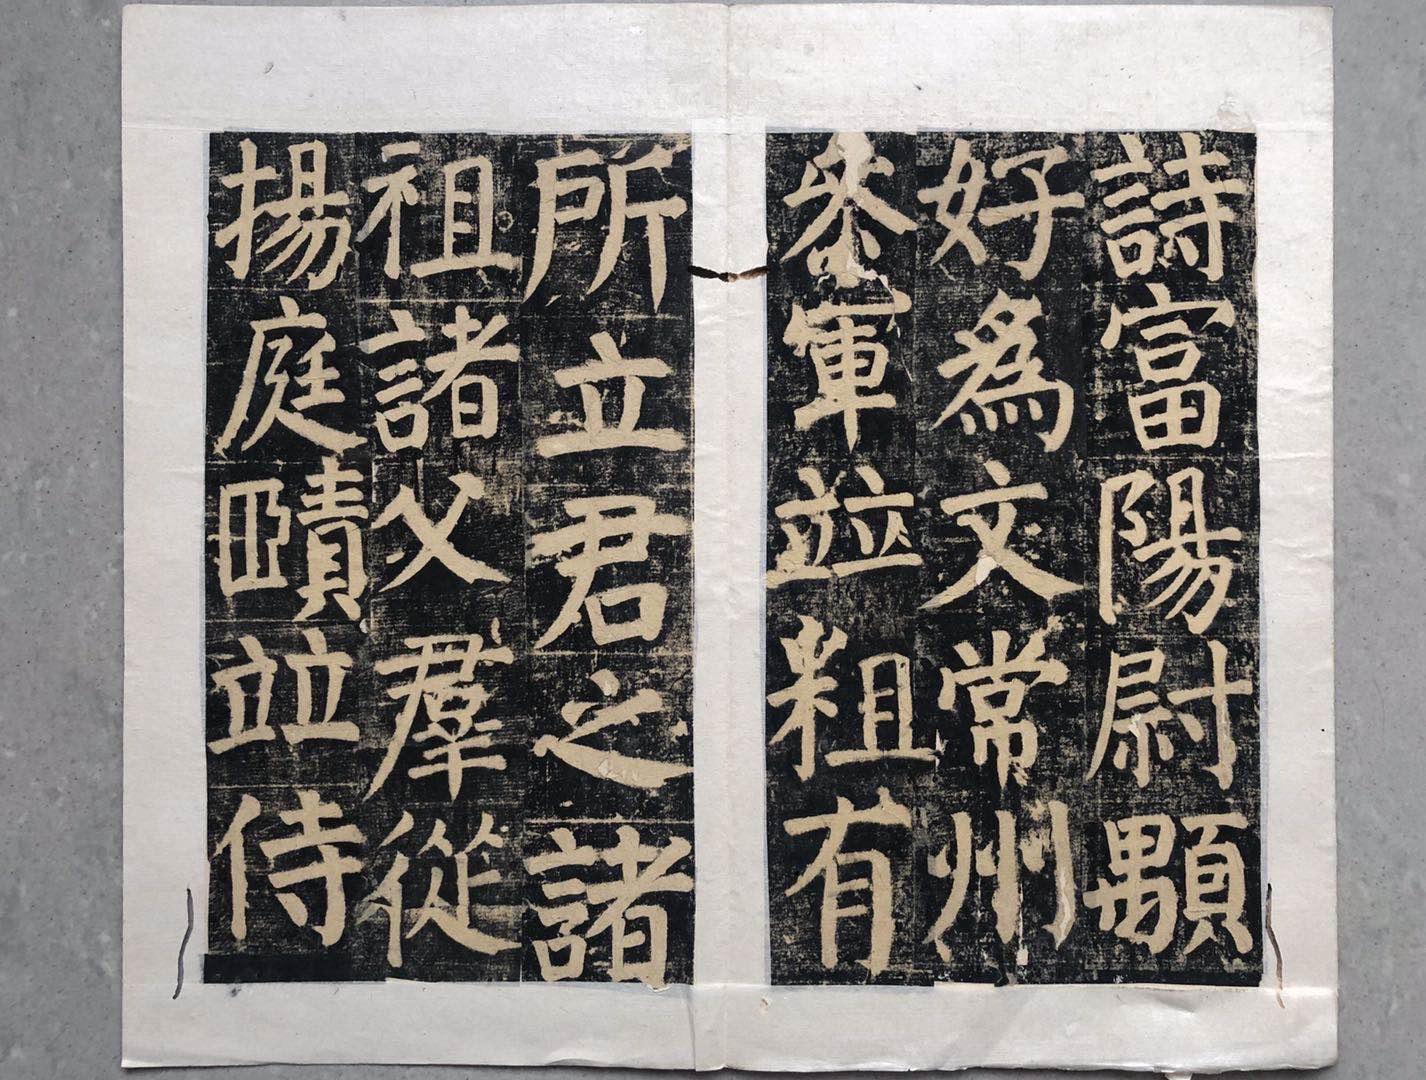 詩富陽尉顒
好爲文常州
參軍竝粗有
所立君之諸
祖諸父羣從
揚庭賾竝侍